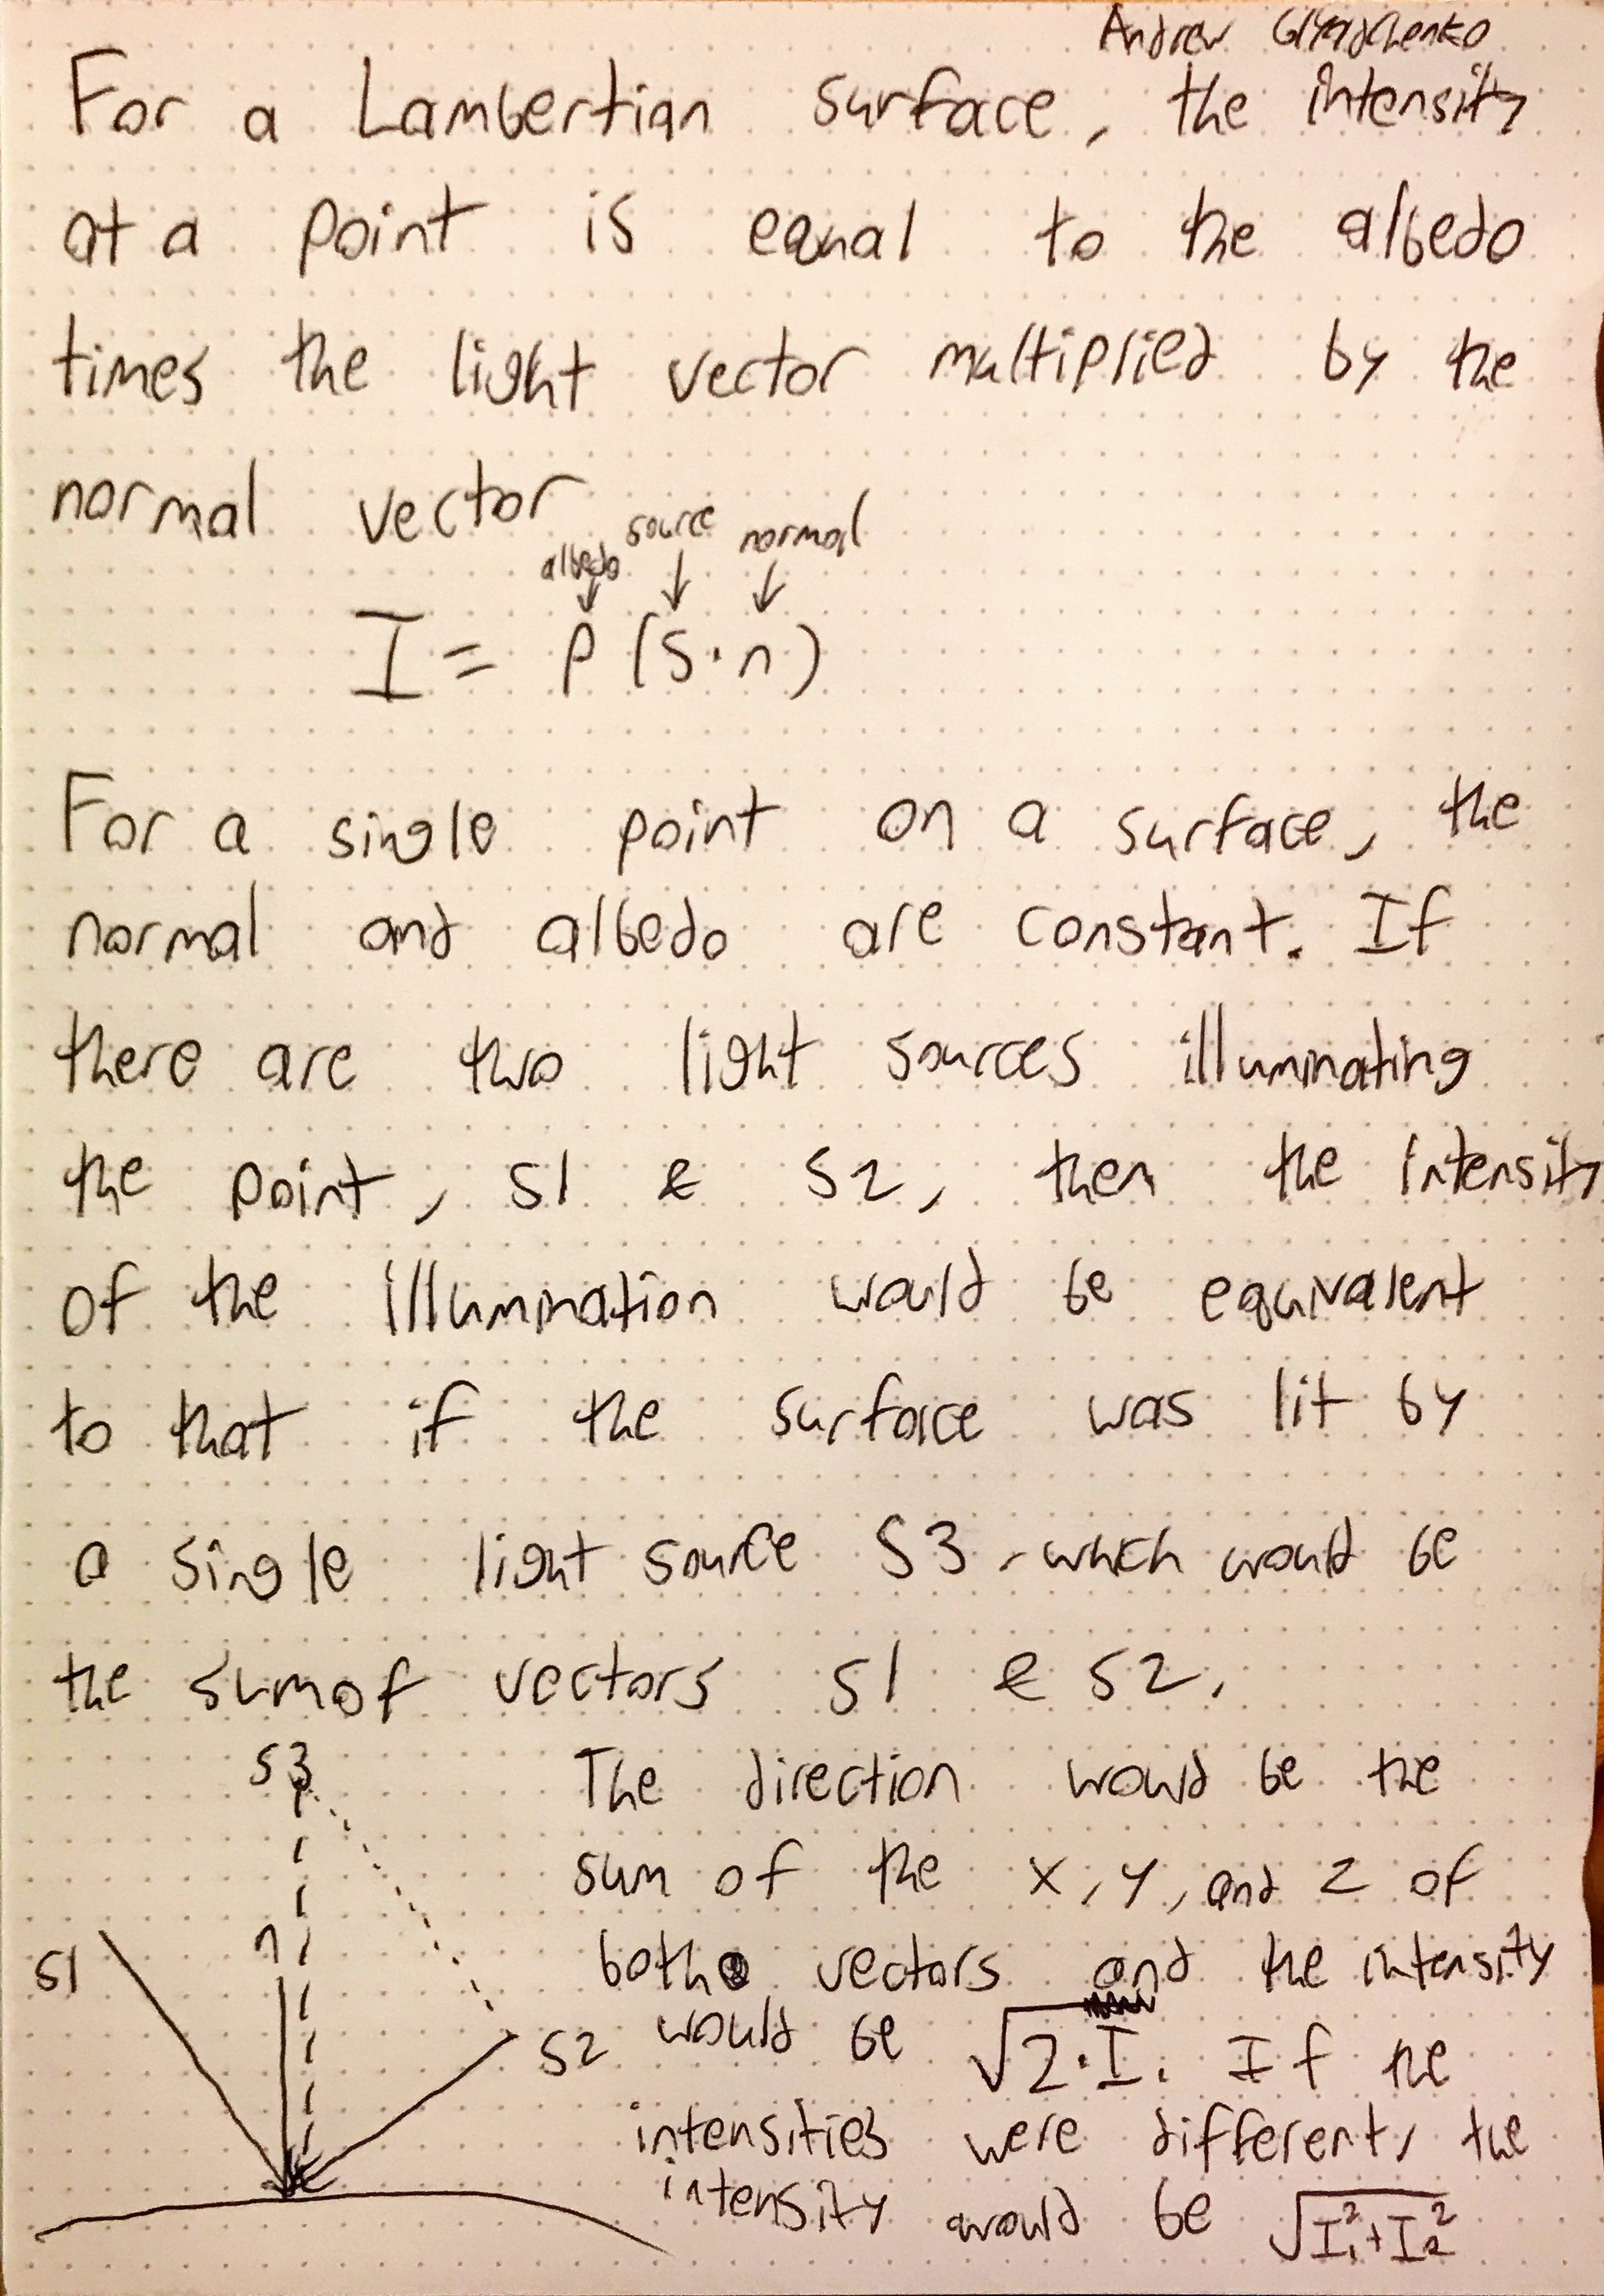 Andrew Glyadchenko
For a Lambertian surface, the intensity
at a point is equal to the albedo
times the light vector multiplied by the
normal vector
albedo source normal
I = ρ (s · n)
For a single point on a surface, the
normal and albedo are constant. If
there are two light sources illuminating
the point, s1 & s2, then the intensity
of the illumination would be equivalent
to that if the surface was lit by
a single light source s3, which would be
the sum of vectors s1 & s2.
s3
The direction would be the
sum of the x, y, and z of
n
s1
both vectors and the intensity
s2
would be √2·I. If the
intensities were different, the
intensity would be √I₁²+I₂²